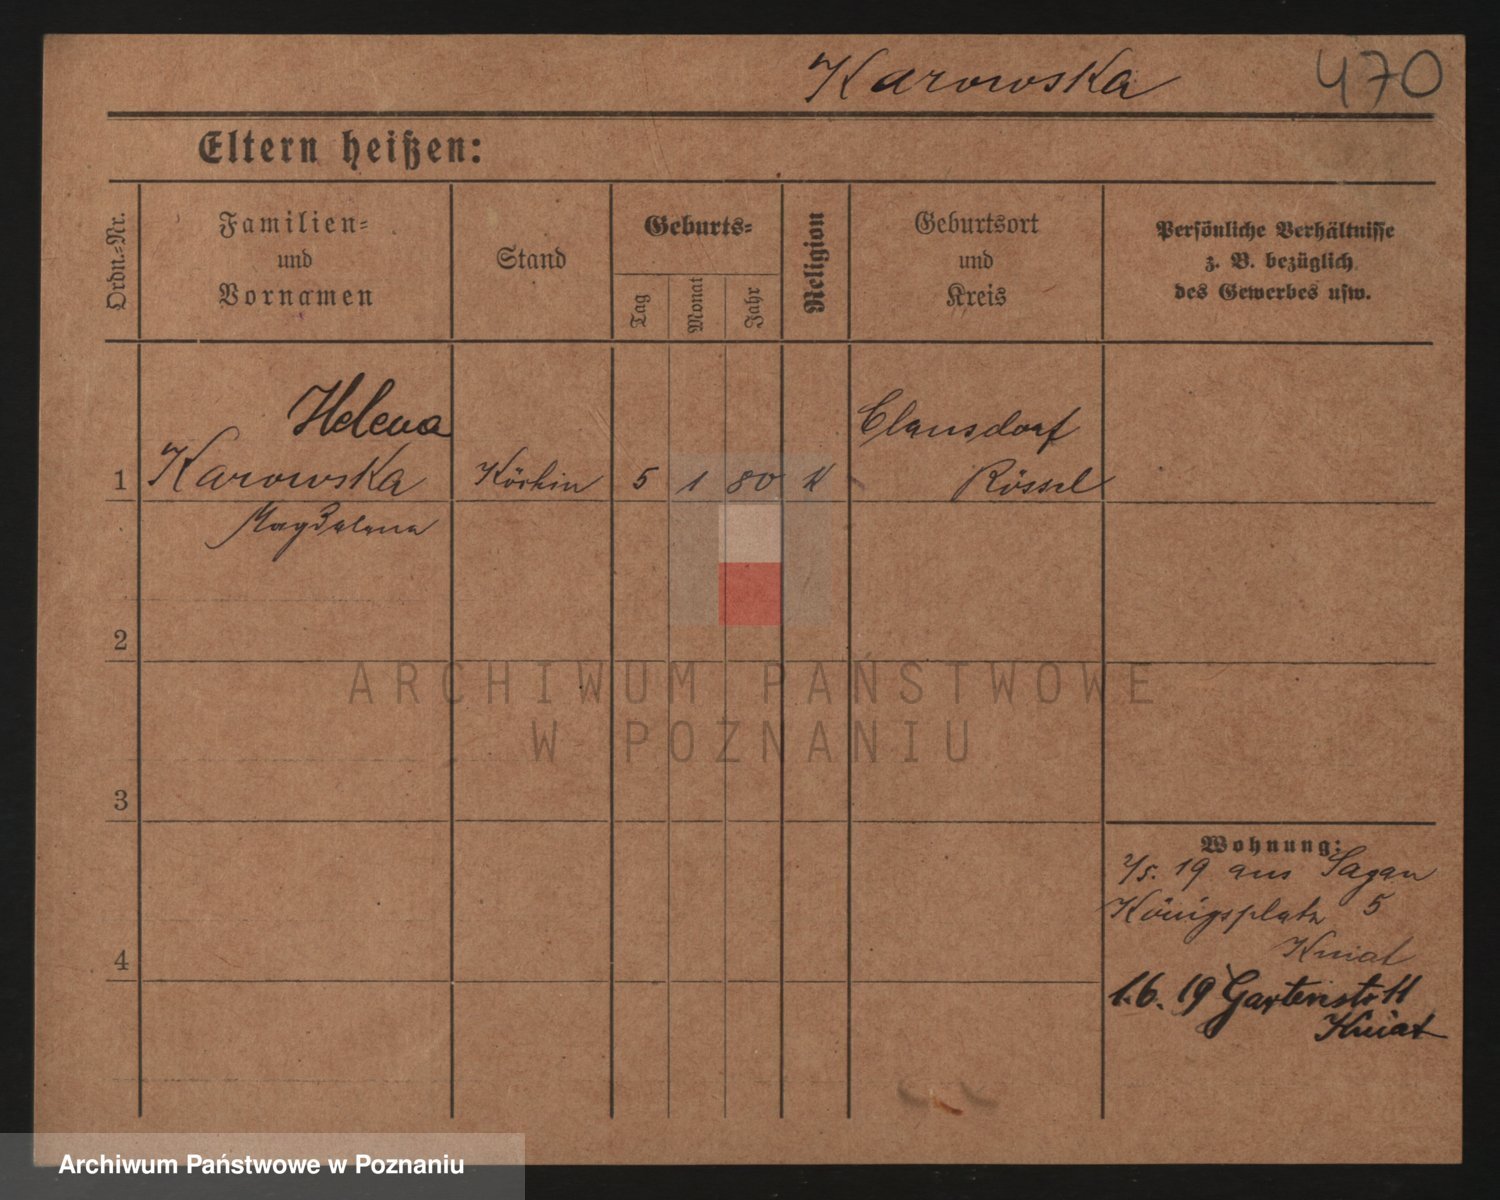 Karowska 470
Eltern heißen:
Ordn.-Nr.
Familien-
und
Vornamen
Stand
Geburts-
Tag
Monat
Jahr
Religion
Geburtsort
und
Kreis
Persönliche Verhältnisse
z. B. bezüglich
des Gewerbes usw.
Helena
1 Karowska Köchin 5 1 80 K
Clausdorf
Rössel
Magdalena
2
3
4
Wohnung:
2/5. 19 aus Sagan
Königsplatz 5
Kniat
1.6. 19 Gartenstr 11
Kniat
ARCHIWUM PAŃSTWOWE
W POZNANIU
Archiwum Państwowe w Poznaniu